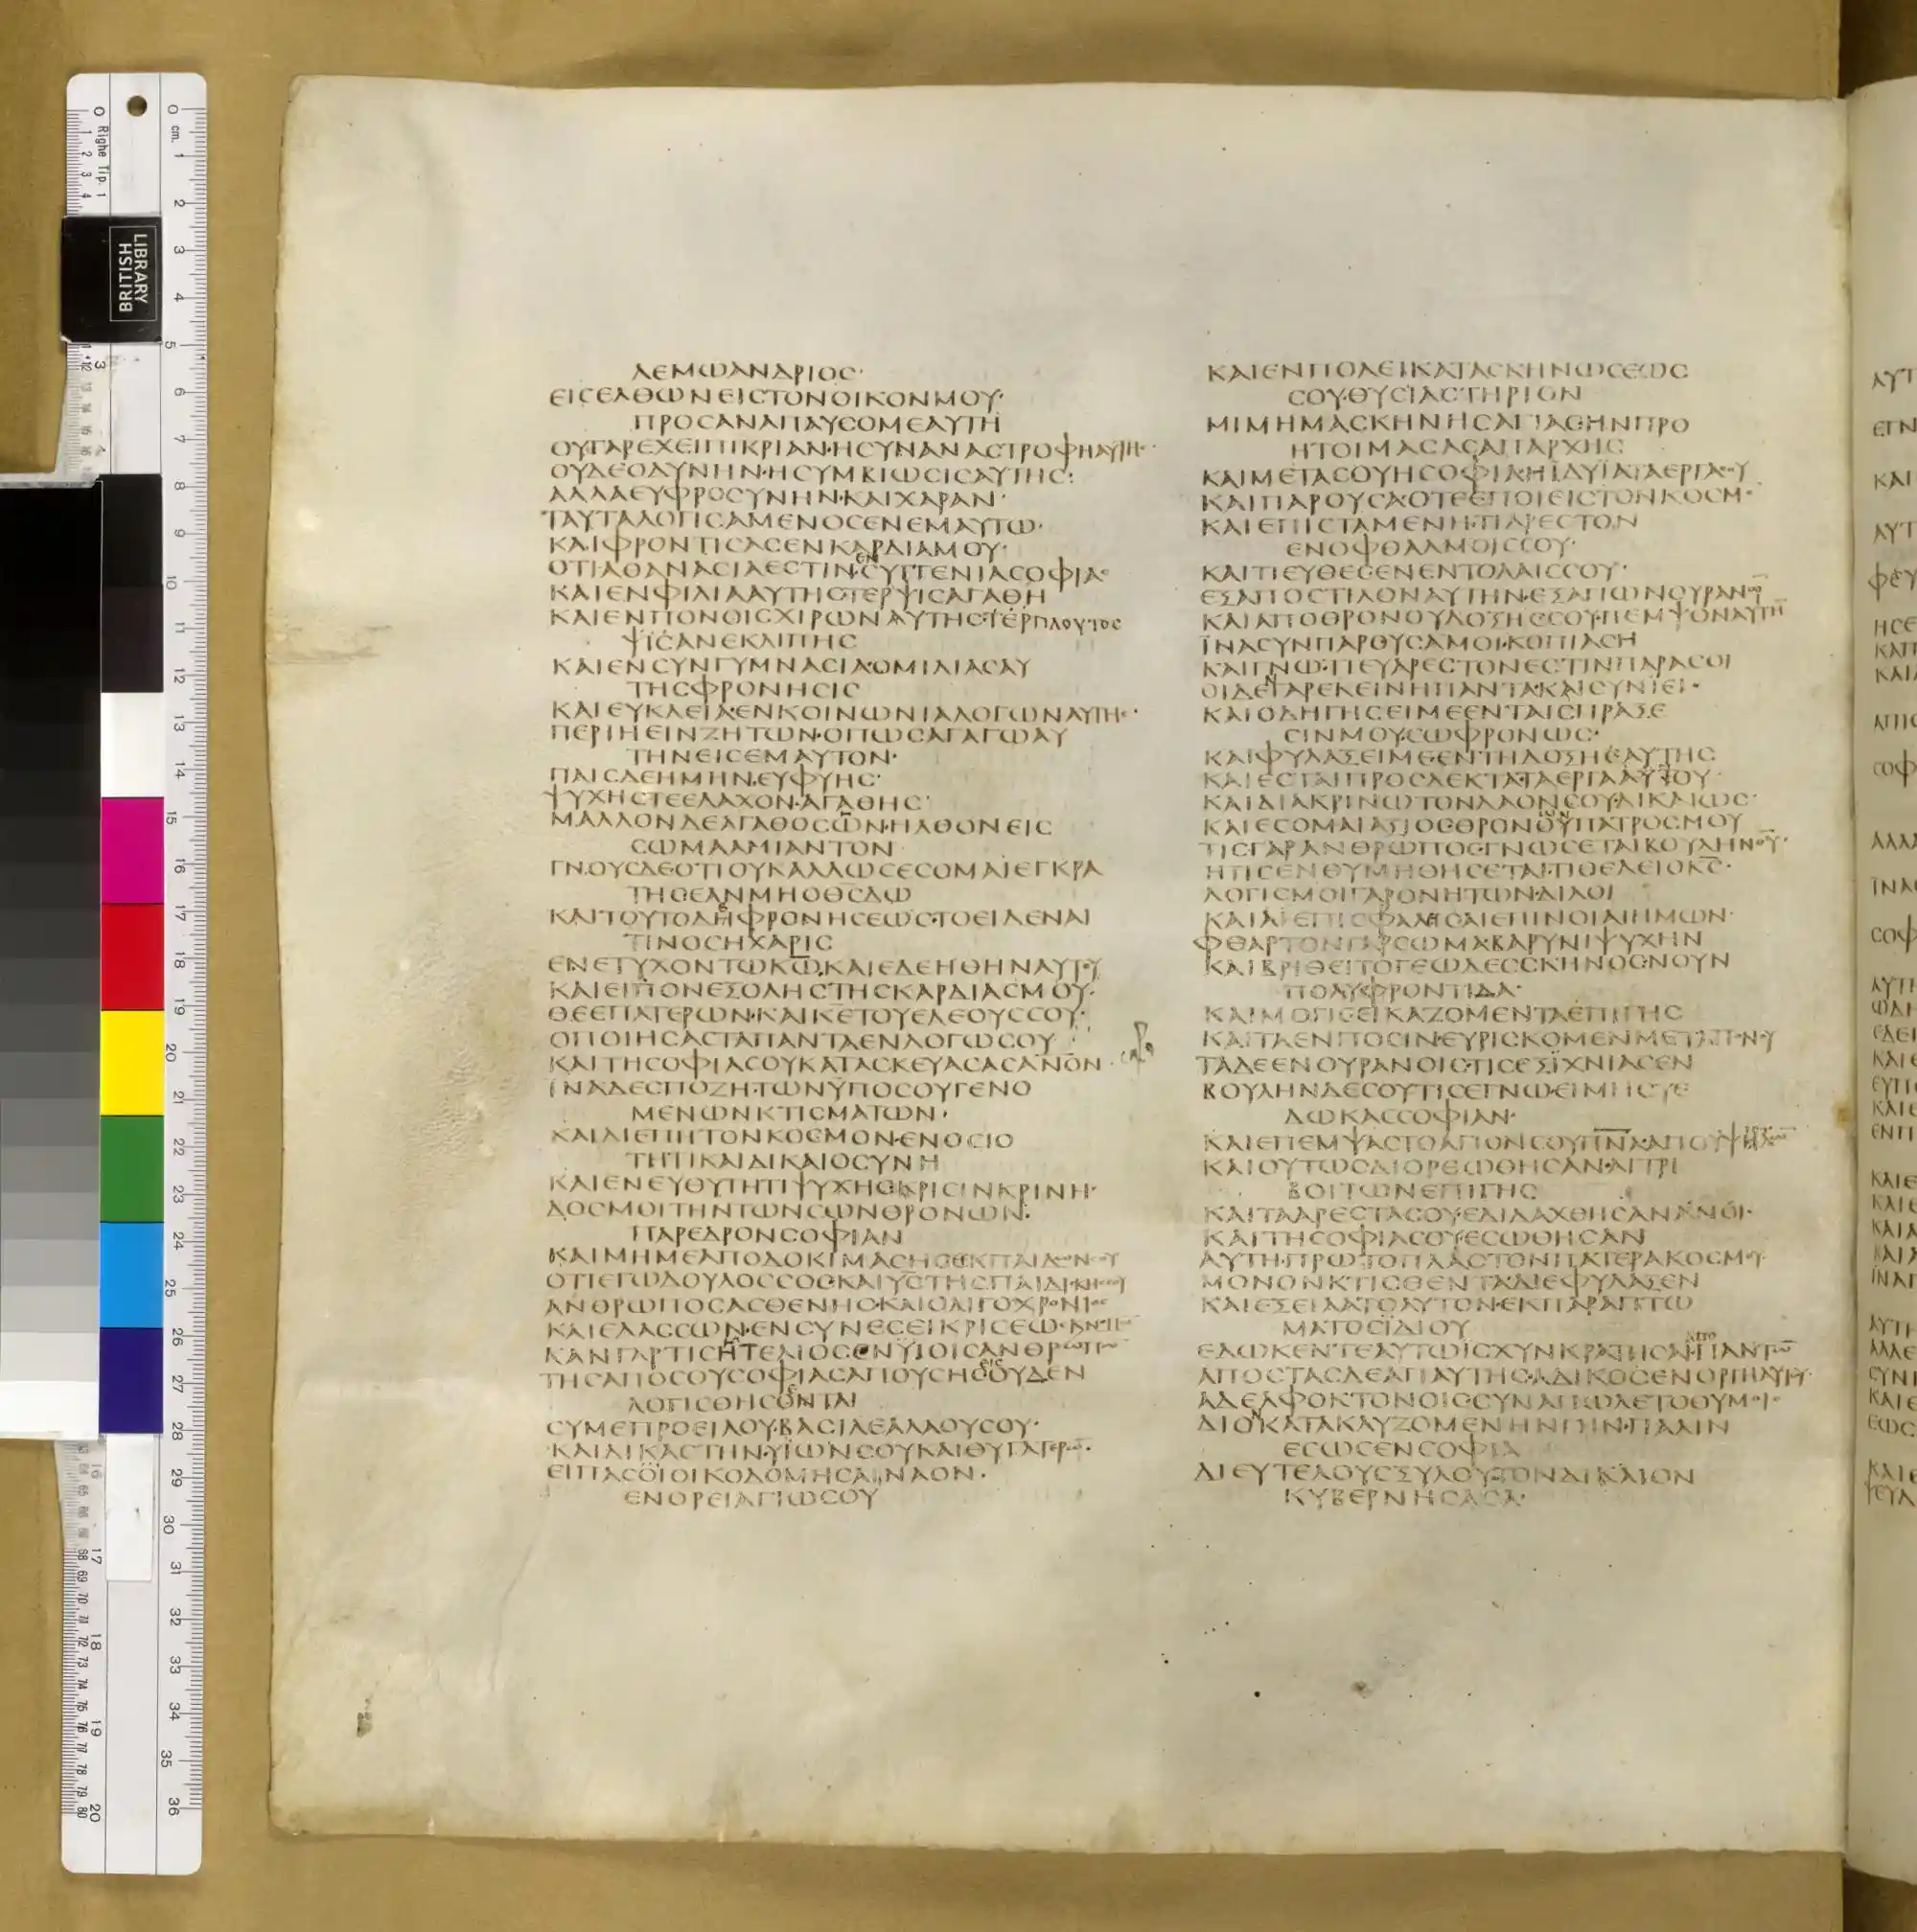 ΛΕΜΩΑΝΔΡΙΟС·
ΕΙСΕΛΘΩΝΕΙСΤΟΝΟΙΚΟΝΜΟΥ·
ΠΡΟСΑΝΑΠΑΥСΟΜΕΑΥΤΗ
ΟΥΓΑΡΕΧΕΙΠΙΚΡΙΑΝ·ΗСΥΝΑΝΑСΤΡΟΦΗΑΥΤΗ
ΟΥΔΕΟΔΥΝΗΝ·ΗСΥΜΒΙΩСΙСΑΥΤΗС:
ΑΛΛΑΕΥΦΡΟСΥΝΗΝ·ΚΑΙΧΑΡΑΝ·
ΤΑΥΤΑΛΟΓΙСΑΜΕΝΟСΕΝΕΜΑΥΤΩ·
ΚΑΙΦΡΟΝΤΙСΑСΕΝΚΑΡΔΙΑΜΟΥ·
ΟΤΙΑΘΑΝΑСΙΑΕСΤΙΝ·СΥΓΓΕΝΙΑСΟΦΙΑС
ΚΑΙΕΝΦΙΛΙΑΑΥΤΗСΤΕΡΨΙСΑΓΑΘΗ
ΚΑΙΕΝΠΟΝΟΙСΧΙΡΩΝΑΥΤΗС·ΤΕΡΠΛΟΥΤΟС
ΨΙСΑΝΕΚΛΙΠΗС
ΚΑΙΕΝСΥΝΓΥΜΝΑСΙΑΟΜΙΛΙΑСΑΥ
ΤΗСΦΡΟΝΗСΙС
ΚΑΙΕΥΚΛΕΙΑ·ΕΝΚΟΙΝΩΝΙΑΛΟΓΩΝΑΥΤΗС·
ΠΕΡΙΗΕΙΝΖΗΤΩΝ·ΟΠΩСΑΓΑΓΩΑΥ
ΤΗΝΕΙСΕΜΑΥΤΟΝ·
ΠΑΙСΔΕΗΜΗΝ·ΕΥΦΥΗС·
ΨΥΧΗСΤΕΕΛΑΧΟΝ·ΑΓΑΘΗС·
ΜΑΛΛΟΝΔΕΑΓΑΘΟСΩΝ·ΗΛΘΟΝΕΙС
СΩΜΑΑΜΙΑΝΤΟΝ
ΓΝΟΥСΔΕΟΤΙΟΥΚΑΛΛΩСΕСΟΜΑΙΕΓΚΡΑ
ΤΗСΕΑΝΜΗΟΘСΔΩ
ΚΑΙΤΟΥΤΟΔΗΦΡΟΝΗСΕΩС·ΤΟΕΙΔΕΝΑΙ
ΤΙΝΟСΗΧΑΡΙС
ΕΝΕΤΥΧΟΝΤΩΚΩ·ΚΑΙΕΔΕΗΘΗΝΑΥΤΟΥ
ΚΑΙΕΙΠΟΝΕΞΟΛΗСΤΗСΚΑΡΔΙΑСΜΟΥ·
ΘΕΕΠΑΤΕΡΩΝ·ΚΑΙΚΕΤΟΥΕΛΕΟΥССΟΥ·
ΟΠΟΙΗСΑСΤΑΠΑΝΤΑΕΝΛΟΓΩСΟΥ
ΚΑΙΤΗСΟΦΙΑСΟΥΚΑΤΑСΚΕΥΑСΑСΑΝΟΝ
ΙΝΑΔΕСΠΟΖΗ·ΤΩΝΫΠΟСΟΥΓΕΝΟ
ΜΕΝΩΝΚΤΙСΜΑΤΩΝ·
ΚΑΙΔΙΕΠΗΤΟΝΚΟСΜΟΝ·ΕΝΟСΙΟ
ΤΗΤΙΚΑΙΔΙΚΑΙΟСΥΝΗ
ΚΑΙΕΝΕΥΘΥΤΗΤΙΨΥΧΗСΚΡΙСΙΝΚΡΙΝΗ·
ΔΟСΜΟΙΤΗΝΤΩΝСΩΝΘΡΟΝΩΝ·
ΠΑΡΕΔΡΟΝСΟΦΙΑΝ
ΚΑΙΜΗΜΕΑΠΟΔΟΚΙΜΑСΗСΕΚΠΑΙΔΩΝСΟΥ
ΟΤΙΕΓΩΔΟΥΛΟССΟС·ΚΑΙΥСΤΗСΠΑΙΔΙСΚΗССΟΥ
ΑΝΘΡΩΠΟСΑСΘΕΝΗСΚΑΙΟΛΙΓΟΧΡΟΝΙΟС
ΚΑΙΕΛΑССΩΝ·ΕΝСΥΝΕСΕΙΚΡΙСΕΩС
ΚΑΝΓΑΡΤΙСΗΤΕΛΙΟСΕΝΫΙΟΙСΑΝΘΡΩΠΩΝ
ΤΗСΑΠΟСΟΥСΟΦΙΑСΑΠΟΥСΗСΟΥΔΕΝ
ΛΟΓΙСΘΗСΟΝΤΑΙ
СΥΜΕΠΡΟΕΙΛΟΥ·ΒΑСΙΛΕΑΛΑΟΥСΟΥ·
ΚΑΙΔΙΚΑСΤΗΝ·ΥΙΩΝСΟΥΚΑΙΘΥΓΑΤΕΡΩ·
ΕΙΠΑСΟΙΟΙΚΟΔΟΜΗСΑΙΝΑΟΝ·
ΕΝΟΡΕΙΑΓΙΩСΟΥ
ΚΑΙΕΝΠΟΛΕΙΚΑΤΑСΚΗΝΩСΕΩС
СΟΥ·ΘΥСΙΑСΤΗΡΙΟΝ
ΜΙΜΗΜΑСΚΗΝΗСΑΓΙΑСΗΝΠΡΟ
ΗΤΟΙΜΑСΑСΑΠΑΡΧΗС
ΚΑΙΜΕΤΑСΟΥΗСΟΦΙΑ·ΗΙΔΥΙΑΤΑΕΡΓΑСΟΥ
ΚΑΙΠΑΡΟΥСΑΟΤΕΕΠΟΙΕΙСΤΟΝΚΟСΜ·
ΚΑΙΕΠΙСΤΑΜΕΝΗ·ΤΙΑΡΕСΤΟΝ
ΕΝΟΦΘΑΛΜΟΙССΟΥ·
ΚΑΙΤΙΕΥΘΕСΕΝΕΝΤΟΛΑΙССΟΥ·
ΕΞΑΠΟСΤΙΛΟΝΑΥΤΗΝ·ΕΞΑΓΙΩΝΟΥΡΑΝΩ
ΚΑΙΑΠΟΘΡΟΝΟΥΔΟΞΗССΟΥΠΕΜΨΟΝΑΥΤΗ
ΪΝΑСΥΝΠΑΡΟΥСΑΜΟΙ·ΚΟΠΙΑСΗ
ΚΑΙΓΝΩ·ΤΙΕΥΑΡΕСΤΟΝΕСΤΙΝΠΑΡΑСΟΙ
ΟΙΔΕΓΑΡΕΚΕΙΝΗΠΑΝΤΑ·ΚΑΙСΥΝΙΕΙ·
ΚΑΙΟΔΗΓΗСΕΙΜΕΕΝΤΑΙСΠΡΑΞΕ
СΙΝΜΟΥСΩΦΡΟΝΩС·
ΚΑΙΦΥΛΑΞΕΙΜΕΕΝΤΗΔΟΞΗΕΑΥΤΗС
ΚΑΙΕСΤΑΙΠΡΟСΔΕΚΤΑ·ΤΑΕΡΓΑΑΥΤΟΥ
ΚΑΙΔΙΑΚΡΙΝΩΤΟΝΛΑΟΝСΟΥΔΙΚΑΙΩС·
ΚΑΙΕСΟΜΑΙΑΞΙΟСΘΡΟΝΟΥΠΑΤΡΟСΜΟΥ
ΤΙСΓΑΡΑΝΘΡΩΠΟСΓΝΩСΕΤΑΙΒΟΥΛΗΝΘΥ·
ΗΤΙСΕΝΘΥΜΗΘΗСΕΤΑΙ·ΤΙΘΕΛΕΙΟΚС·
ΛΟΓΙСΜΟΙΓΑΡΟΝΗΤΩΝ·ΔΙΛΟΙ
ΚΑΙΑΙΕΠΙСΦΑΛΙСΑΙΕΠΙΝΟΙΑΙΗΜΩΝ·
ΦΘΑΡΤΟΝΓΑΡСΩΜΑ·ΒΑΡΥΝΙΨΥΧΗΝ
ΚΑΙΒΡΙΘΕΙΤΟΓΕΩΔΕССΚΗΝΟСΝΟΥΝ
ΠΟΛΥΦΡΟΝΤΙΔΑ·
ΚΑΙΜΟΓΙСΕΙΚΑΖΟΜΕΝΤΑΕΠΙΓΗС
ΚΑΙΤΑΕΝΠΟСΙΝ·ΕΥΡΙСΚΟΜΕΝΜΕΤΑΠΟΝΟΥ
ΤΑΔΕΕΝΟΥΡΑΝΟΙСΤΙСΕΞΙΧΝΙΑСΕΝ
ΒΟΥΛΗΝΔΕСΟΥΤΙСΕΓΝΩ·ΕΙΜΗСΥΕ
ΔΩΚΑССΟΦΙΑΝ·
ΚΑΙΕΠΕΜΨΑСΤΟΑΓΙΟΝСΟΥΠΝΑ·ΑΠΟΥΨΙСΤΩΝ
ΚΑΙΟΥΤΩСΔΙΟΡΕΩΘΗСΑΝ·ΑΙΤΡΙ
ΒΟΙΤΩΝΕΠΙΓΗС
ΚΑΙΤΑΑΡΕСΤΑСΟΥ·ΕΔΙΔΑΧΘΗСΑΝΑΝΟΙ·
ΚΑΙΤΗСΟΦΙΑСΟΥ·ΕСΩΘΗСΑΝ
ΑΥΤΗ·ΠΡΩΤΟΠΛΑСΤΟΝΠΑΤΕΡΑΚΟСΜΟΥ·
ΜΟΝΟΝΚΤΙСΘΕΝΤΑΔΙΕΦΥΛΑΞΕΝ
ΚΑΙΕΞΕΙΛΑΤΟΑΥΤΟΝ·ΕΚΠΑΡΑΠΤΩ
ΜΑΤΟСΪΔΙΟΥ
ΕΔΩΚΕΝΤΕΑΥΤΩΙСΧΥΝΚΡΑΤΗСΑΙΠΑΝΤΩ
ΑΠΟСΤΑСΔΕΑΠΑΥΤΗС·ΑΔΙΚΟСΕΝΟΡΓΗΑΥΤΟΥ·
ΑΔΕΛΦΟΚΤΟΝΟΙССΥΝΑΠΩΛΕΤΟΘΥΜΟΙС
ΔΙΟΚΑΤΑΚΛΥΖΟΜΕΝΗΝΓΗΝ·ΠΑΛΙΝ
ΕСΩСΕΝСΟΦΙΑ
ΔΙΕΥΤΕΛΟΥСΞΥΛΟΥ·ΤΟΝΔΙΚΑΙΟΝ
ΚΥΒΕΡΝΗСΑСΑ·
LIBRARY
BRITISH